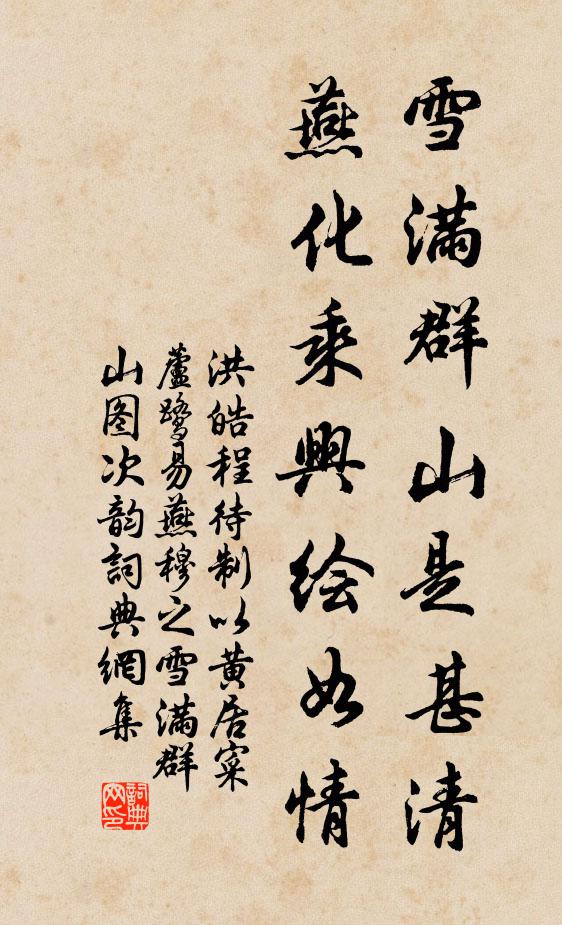 雪满群山是甚清
燕化乘興绘如情
洪皓程待制以黄居寀
蘆鹭易燕穆之雪满群
山图次韵詞典網集
詞典
网印